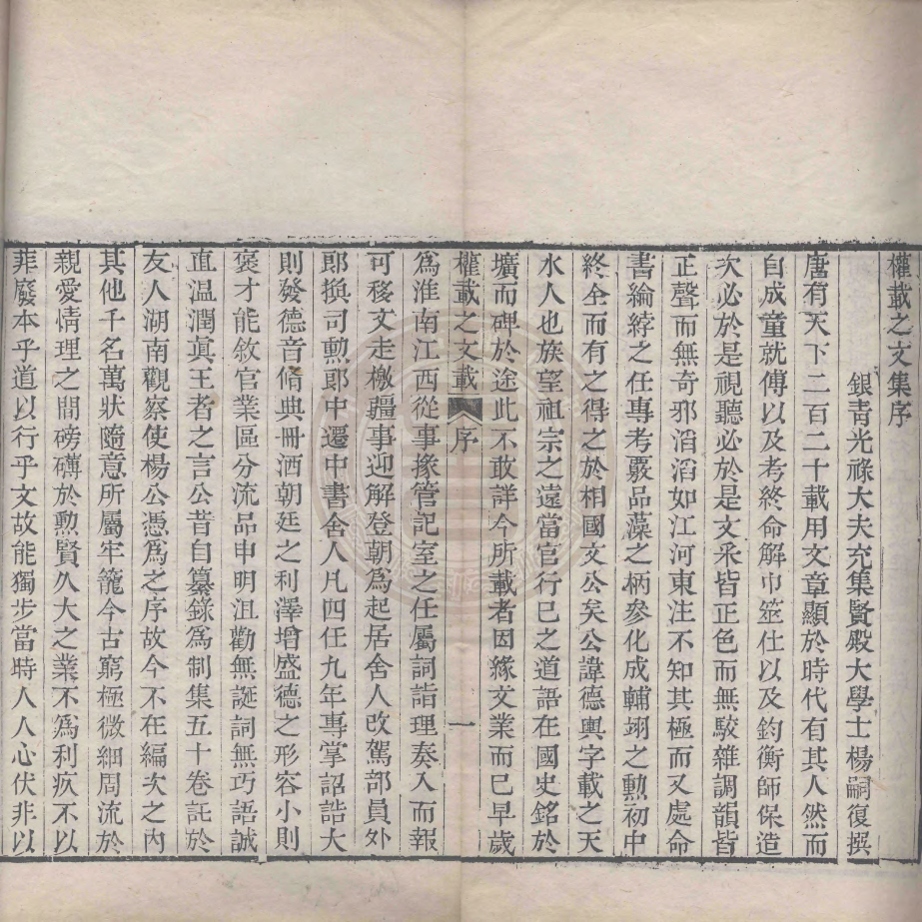 權載之文集序
銀青光祿大夫充集賢殿大學士楊嗣復撰
唐有天下二百二十載用文章顯於時代有其人然而
自成童就傅以及考終命解巾筮仕以及鈞衡師保造
次必於是視聽必於是文采皆正色而無駁雜調韻皆
正聲而無奇邪滔滔如江河東注不知其極而又處命
書綸綍之任專考覈品藻之柄參化成輔翊之勲初中
終全而有之得之於相國文公矣公諱德輿字載之天
水人也族望祖宗之遠當官行已之道語在國史銘於
壙而碑於途此不敢詳今所載者因緣文業而已早歲
權載之文載 序 一
爲淮南江西從事掾管記室之任屬詞詣理奏入而報
可移文走檄疆事迎解登朝爲起居舍人改駕部員外
郎換司勲郎中遷中書舍人凡四任九年專掌詔誥大
則發德音脩典冊洒朝廷之利澤增盛德之形容小則
褒才能敘官業區分流品申明沮勸無誕詞無巧語誠
直温潤眞王者之言公昔自纂錄爲制集五十卷託於
友人湖南觀察使楊公憑爲之序故今不在編次之內
其他千名萬狀隨意所屬牢籠今古窮極微細周流於
親愛情理之間磅礴於勲賢久大之業不爲利疚不以
菲廢本乎道以行乎文故能獨步當時人人心伏非以